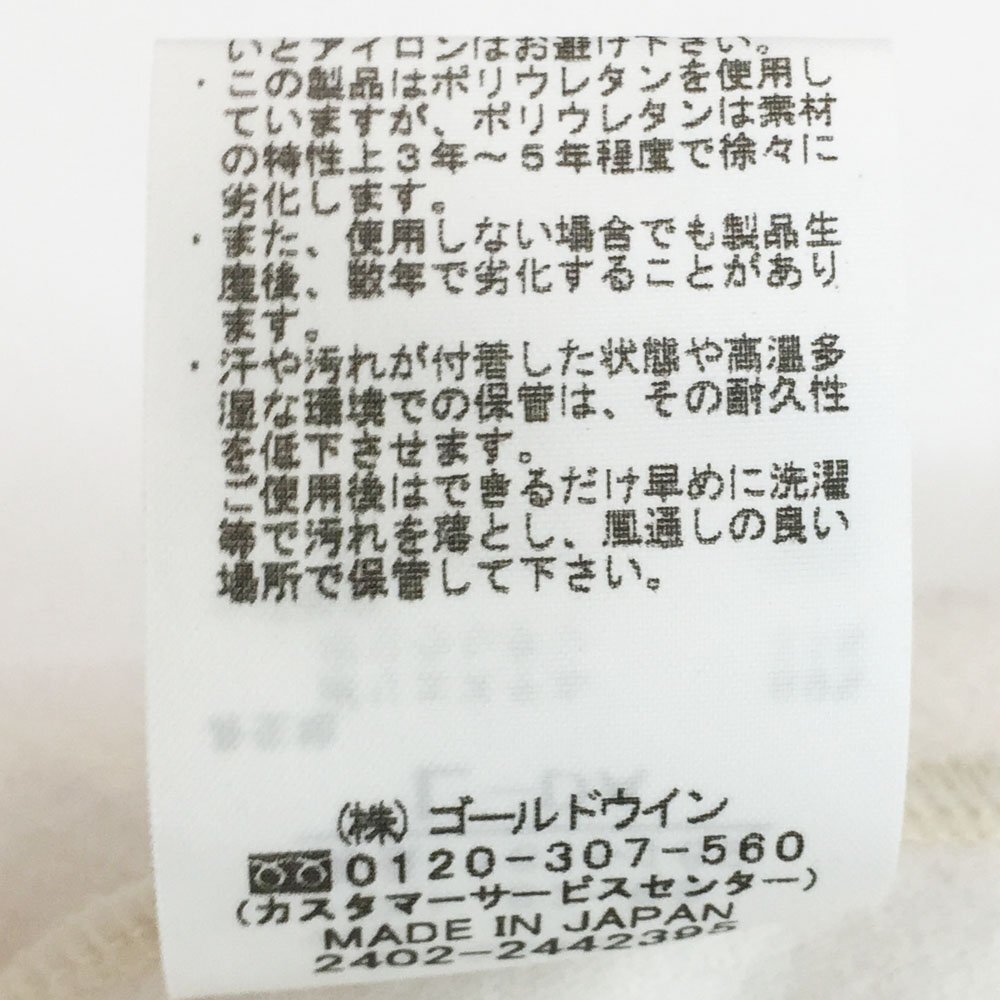 いとアイロンはお避け下さい。
・この製品はポリウレタンを使用し
ていますが、ポリウレタンは素材
の特性上3年～5年程度で徐々に
劣化します。
・また、使用しない場合でも製品生
産後、数年で劣化することがあり
ます。
・汗や汚れが付着した状態や高温多
湿な環境での保管は、その耐久性
を低下させます。
ご使用後はできるだけ早めに洗濯
等で汚れを落とし、風通しの良い
場所で保管して下さい。
(株)ゴールドウイン
0120-307-560
(カスタマーサービスセンター)
MADE IN JAPAN
2402-2442395